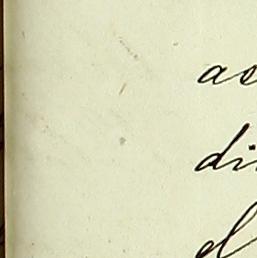 as
di
d